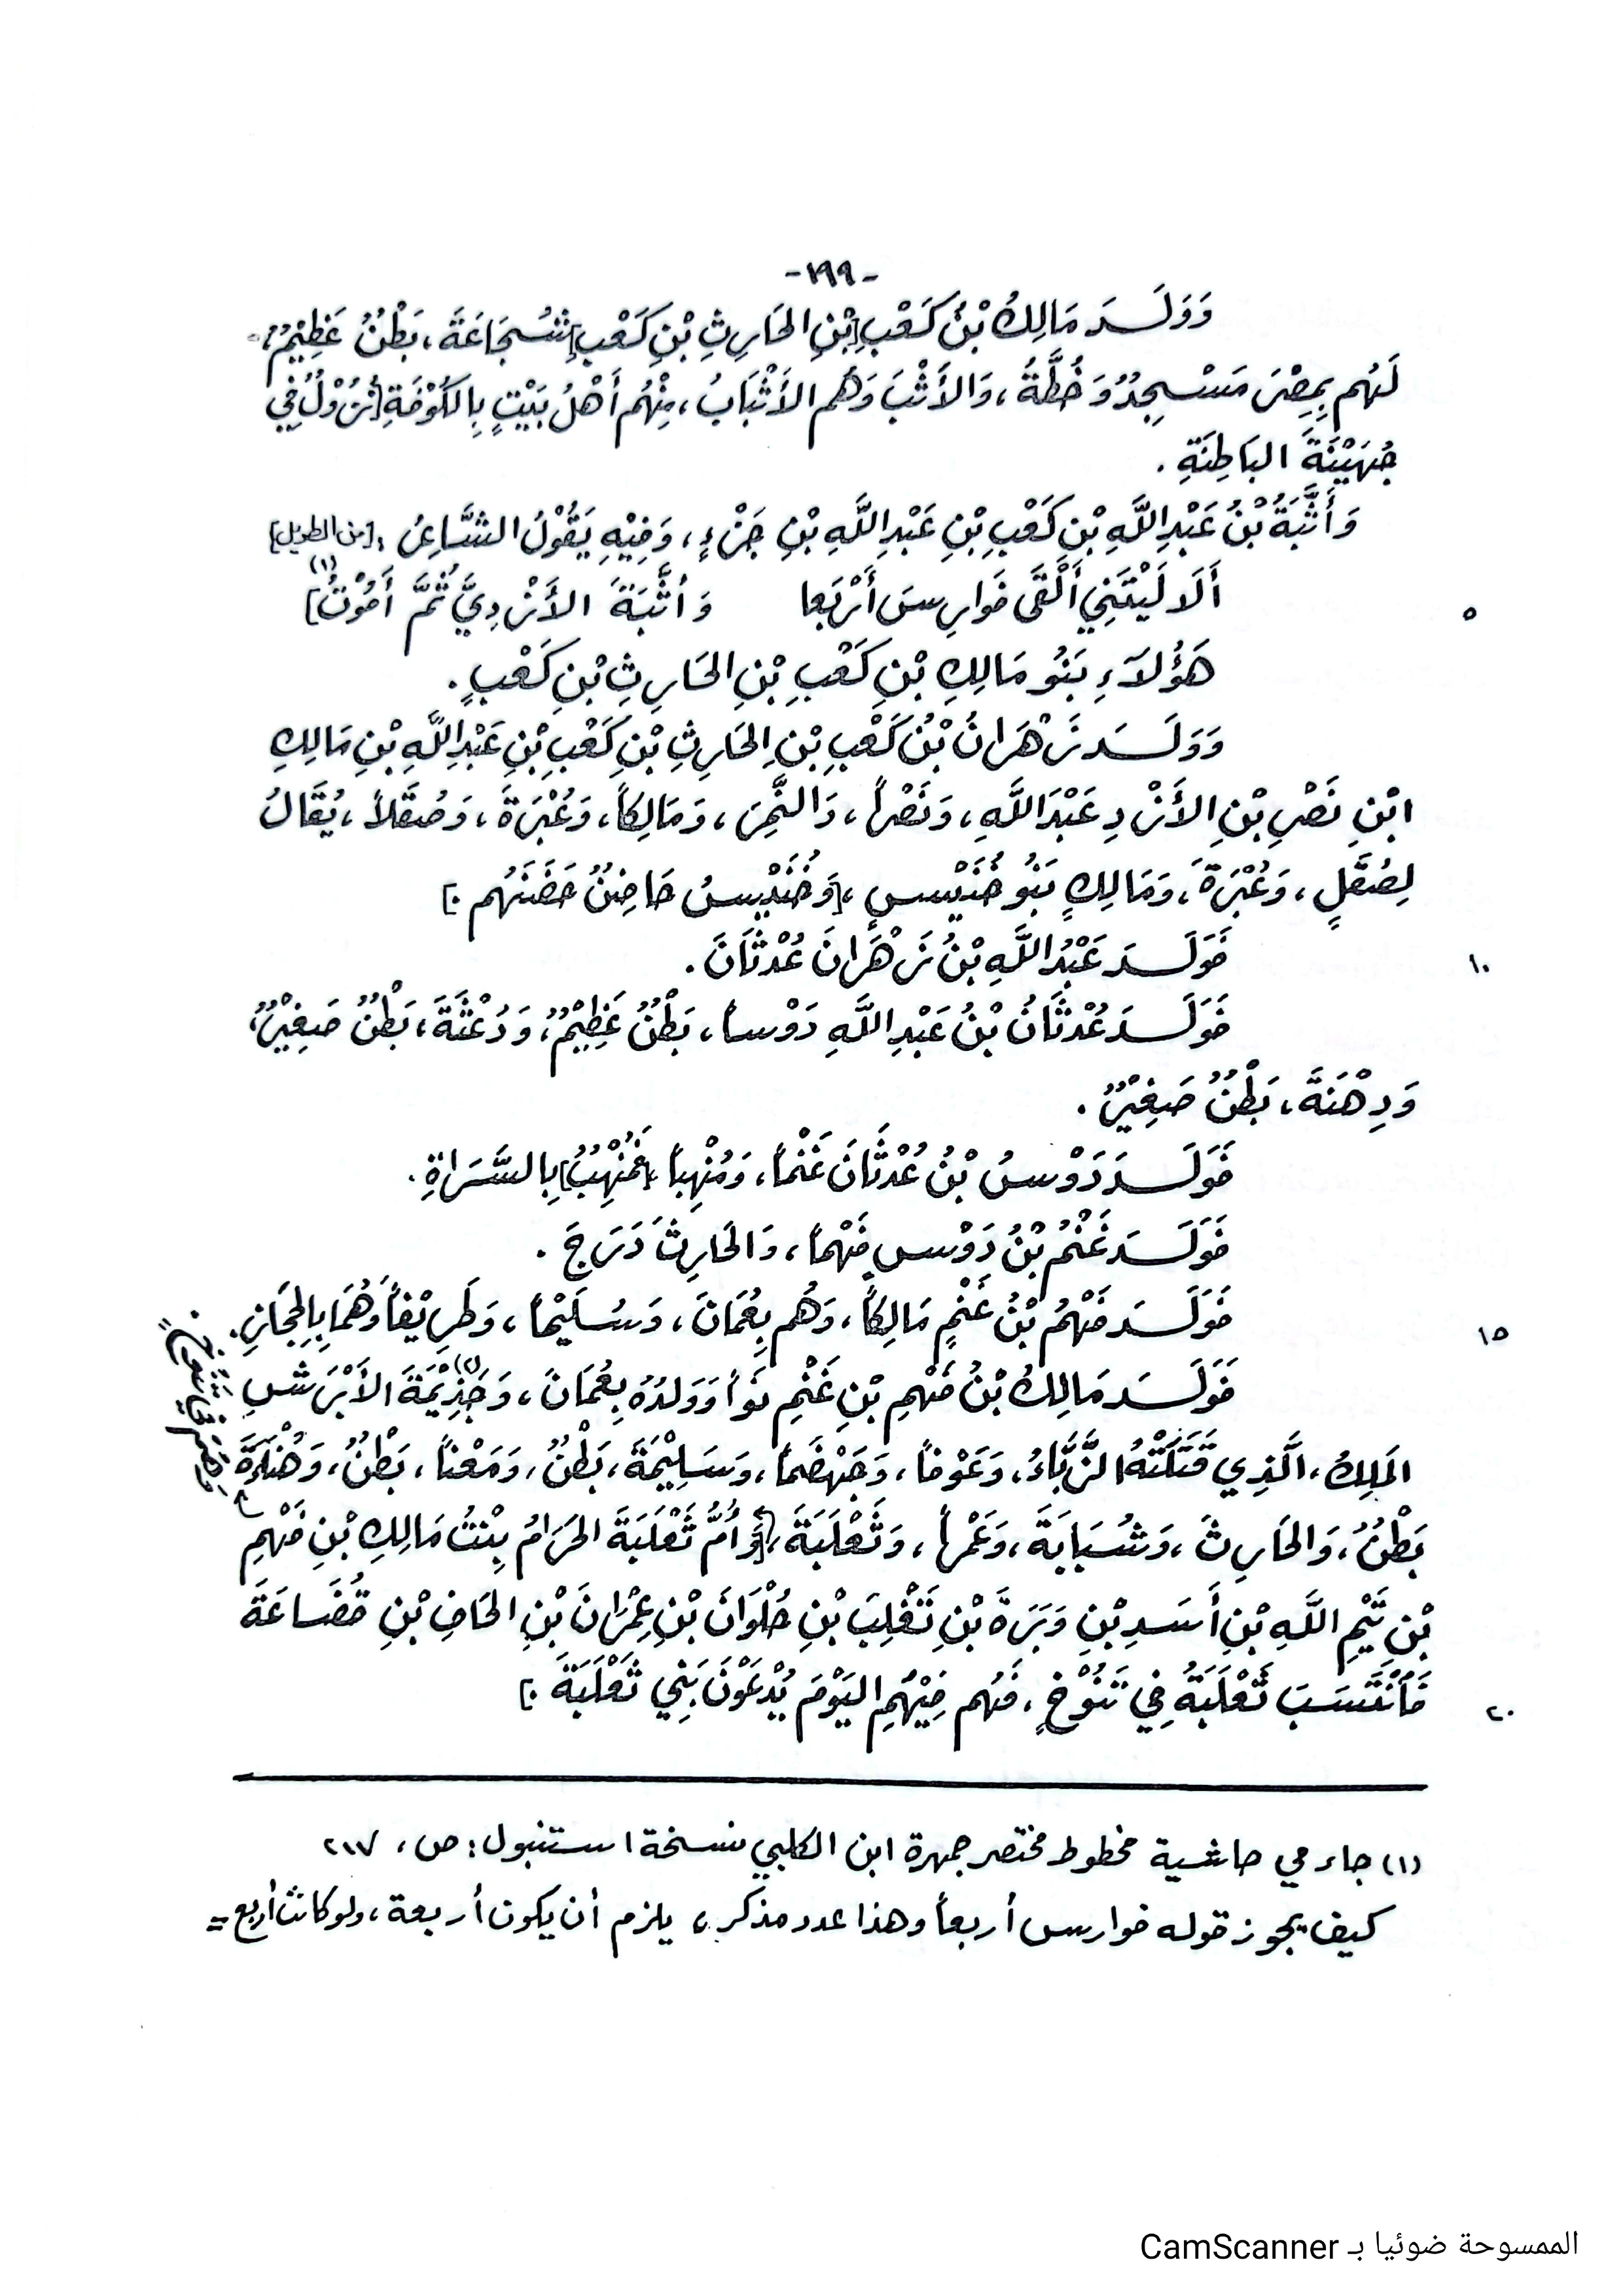 -١٩٩-
وَوَلَـــدَ مَالِكُ بْنُ كَعْبِ [بْنِ الحَارِثِ بْنِ كَعْبٍ] شُجَاعَةَ، بَطْنٌ عَظِيْمٌ،
لَهُم بِمِصْرَ مَسْجِدٌ وَخُطَّةٌ، وَالأَثْبَ وَهُم الأَثْبَابُ، مِنْهُم أَهْلُ بَيْتٍ بِالكُوْفَةِ [نُزُوْلٌ فِي
جُهَيْنَةَ البَاطِنَةِ .
وَأَثْبَةُ بْنُ عَبْدِ اللَّهِ بْنِ كَعْبِ بْنِ عَبْدِ اللَّهِ بْنِ جَزْءٍ، وَفِيْهِ يَقُوْلُ الشَّاعِرُ : [من الطويل]
أَلَا لَيْتَنِي أَلْقَى فَوارِسَ أَرْبَعا وَأثْبَةَ الأَزْدِيَّ ثُمَّ أَمُوْتُ] (١)
٥
هَؤُلَاءِ بَنُو مَالِكِ بْنِ كَعْبِ بْنِ الحَارِثِ بْنِ كَعْبٍ .
وَوَلَـــدَ زَهْرَانُ بْنُ كَعْبِ بْنِ الحَارِثِ بْنِ كَعْبِ بْنِ عَبْدِ اللَّهِ بْنِ مَالِكِ
ابْنِ نَصْرِ بْنِ الأَزْدِ عَبْدَ اللَّهِ، وَنَصْراً، وَالنَّمِرَ، وَمَالِكاً، وَعُبْرَةَ، وَصُقَلاً، يُقَالُ
لِصُقَلٍ، وَعُبْرَةَ، وَمَالِكٍ بَنُو خُنَيْسٍ، [وَخُنَيْسُ حَاضِنٌ حَضَنَهُم .]
فَوَلَـــدَ عَبْدُ اللَّهِ بْنُ زَهْرَانَ عُدْثَانَ .
١٠
فَوَلَـــدَ عُدْثَانُ بْنُ عَبْدِ اللَّهِ دَوْساً، بَطْنٌ عَظِيْمٌ، وَدُعْثَةَ، بَطْنٌ صَغِيْرٌ،
وَدِهْنَةَ، بَطْنٌ صَغِيْرٌ .
فَوَلَـــدَ دَوْسُ بْنُ عُدْثَانَ غَنْماً، وَمُنْهِباً، [فَمُنْهِبٌ] بِالسَّرَاةِ .
فَوَلَـــدَ غَنْمُ بْنُ دَوْسٍ فَهْماً، وَالحَارِثَ دَرَجَ .
فَوَلَـــدَ فَهْمُ بْنُ غَنْمٍ مَالِكاً، وَهُم بِعُمَانَ، وَسُلَيْماً، وَطَرِيْفاً وَهُمَا بِالحِجَازِ .
١٥
فَوَلَـــدَ مَالِكُ بْنُ فَهْمِ بْنِ غَنْمٍ نَوَا وَوَلَدُهُ بِعُمَانَ، وَجَذِيْمَةَ (٢) الأَبْرَشَ
المَلِكُ، الَّذِي قَتَلَتْهُ الزَّبَّاءُ، وَعَوْفاً، وَجَهْضَماً، وَسَلِيْمَةَ، بَطْنٌ، وَمَعْناً، بَطْنٌ، وَهُنَاءَةَ
بَطْنٌ، وَالحَارِثَ، وَشُبَابَةَ، وَعَمْراً، وَثَعْلَبَةَ، [وَأُمُّ ثَعْلَبَةَ الحَرَامُ بِنْتُ مَالِكِ بْنِ فَهْمِ
بْنِ تَيْمِ اللَّهِ بْنِ أَسَدِ بْنِ وَبَرَةَ بْنِ تَغْلِبَ بْنِ حُلْوَانَ بْنِ عِمْرَانَ بْنِ الحَافِ بْنِ قُضَاعَةَ
فَانْتَسَبَ ثَعْلَبَةُ فِي تَنُوْخٍ، فَهُم فِيْهُمِ اليَوْمَ يُدْعَوْنَ بَنِي ثَعْلَبَةَ .]
٢٠
(١) جاء في حاشية مخطوط مختصر جمهرة ابن الكلبي نسخة استنبول: ص، ٢١٧
كيف يجوز قوله فوارس أربعاً وهذا عدد مذكر، يلزم أن يكون أربعة، ولو كانت أربع =
الممسوحة ضوئيا بـ CamScanner